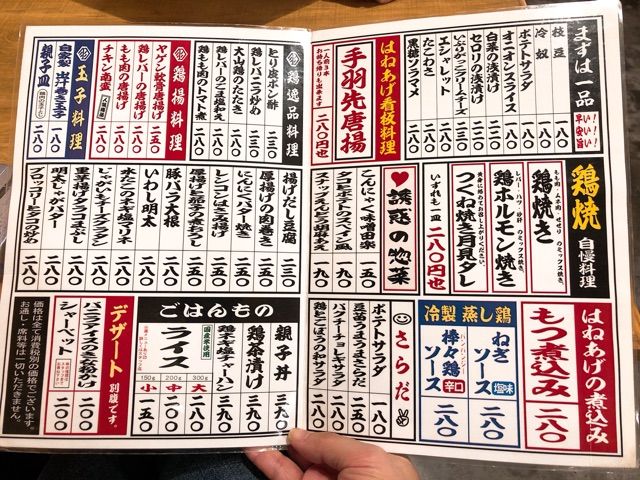 まずは一品
早い！安い！旨い！
枝豆 一八〇
冷奴 一八〇
ポテトサラダ 一八〇
オニオンスライス 一八〇
白菜の浅漬け
セロリの浅漬け
いぶりがっこクリームチーズ
エシャレット
たこわさ
黒糖ソラマメ 一八〇
はねあげ看板料理
手羽先唐揚
一人前三本
お持ち帰りも出来ます
二八〇円也
鶏逸品料理
とり皮ポン酢 二三〇
鶏レバニラ炒め 二三〇
大山鶏のたたき 二八〇
鶏レバーのごま塩和え 二八〇
鶏もも肉のトマト煮 二八〇
鶏揚料理
ヤゲン軟骨唐揚げ 二八〇
鶏レバーの唐揚げ 二八〇
もも肉の唐揚げ 二八〇
チキン南蛮 二八〇
玉子料理
自家製 岸巻き玉子 二八〇
親子皿 二八〇
鶏焼 自慢料理
鶏焼き
もも肉、ムネ肉、せせり のミックス焼き。
鶏ホルモン焼き
レバー・ハツ・砂肝 のミックス焼き。
つくね焼き月見タレ
黄身に絡めてお召し上がりください。
いずれも一皿 二八〇円也
誘惑の惣菜
こんにゃく味噌田楽 一五〇
タコとポテトのスペイン風 一九〇
スナップえんどう胡麻あえ 一九〇
揚げだし豆腐 二三〇
厚揚げの肉巻き 二八〇
にんにくバター焼き 二八〇
レンコンはさみ揚げ 二八〇
厚揚げと茄子の煮びたし 二八〇
豚バラ大根 二八〇
いわし明太 二八〇
水だこのネギ塩マリネ 二八〇
じゃがいもチーズグラタン 二八〇
里芋揚げタラコまぶし 二八〇
明太じゃがバター 二八〇
ブロッコリーとエビの炒め 二八〇
はねあげの煮込み
もつ煮込み 二八〇
冷製 蒸し鶏
ねぎソース 塩味 二八〇
棒々鶏ソース 辛口 二八〇
バンバンジー
さらだ
ポテトサラダ 一八〇
豆苗うまうまさらだ 二五〇
パクチーチョレギサラダ 二八〇
鶏とごぼうの和サラダ 二八〇
ごはんもの
親子丼 三九〇
鶏茶漬け 三九〇
鶏ネギ塩チャーハン 三九〇
国産米使用
ライス
300g 大 二六〇
200g 中 二〇〇
150g 小 一五〇
デザート 別腹です。
バニラアイスのきな粉がけ 二〇〇
シャーベット 二〇〇
価格は全て消費税別の価格でございます。
お通し・席料等は一切いただきません。